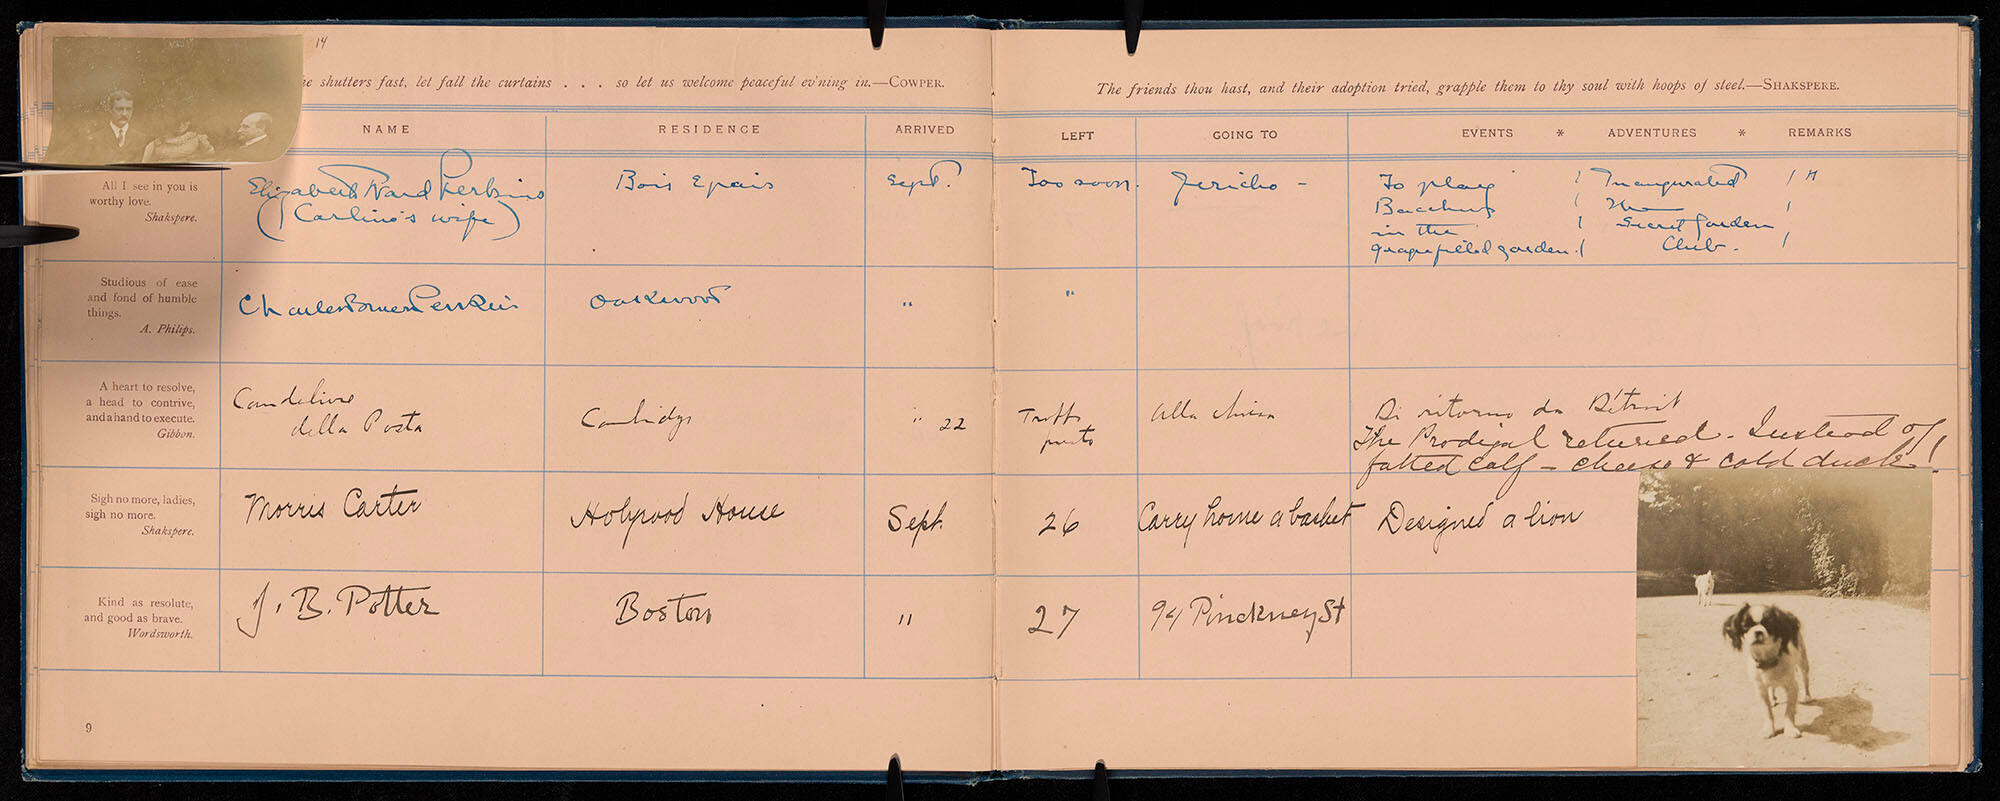 14
shutters fast, let fall the curtains . . . so let us welcome peaceful ev'ning in.—COWPER.
NAME RESIDENCE ARRIVED
All I see in you is
worthy love.
Shakspere.
Elizabeth Ward Perkins
(Carlino's wife)
Bois Epais
Sept.
Studious of ease
and fond of humble
things.
A. Philips.
Charles Bruen Perkins
Oakwood
"
A heart to resolve,
a head to contrive,
and a hand to execute.
Gibbon.
della Posta
" 22
Sigh no more, ladies,
sigh no more.
Shakspere.
Morris Carter
Holyrood House
Sept.
Kind as resolute,
and good as brave.
Wordsworth.
J. B. Potter
Boston
"
9
The friends thou hast, and their adoption tried, grapple them to thy soul with hoops of steel.—SHAKSPERE.
LEFT GOING TO EVENTS * ADVENTURES * REMARKS
Too soon.
Jericho -
To play
Bacchus
in the
grapefilled garden.
Inaugurated
The
Secret Garden
Club.
"
Troppo
presto
alla
Di ritorno da Detroit
The Prodigal returned - Instead of
fatted calf - cheese & cold duck!
26
Carry home a basket
Designed a lion
27
94 Pinckney St